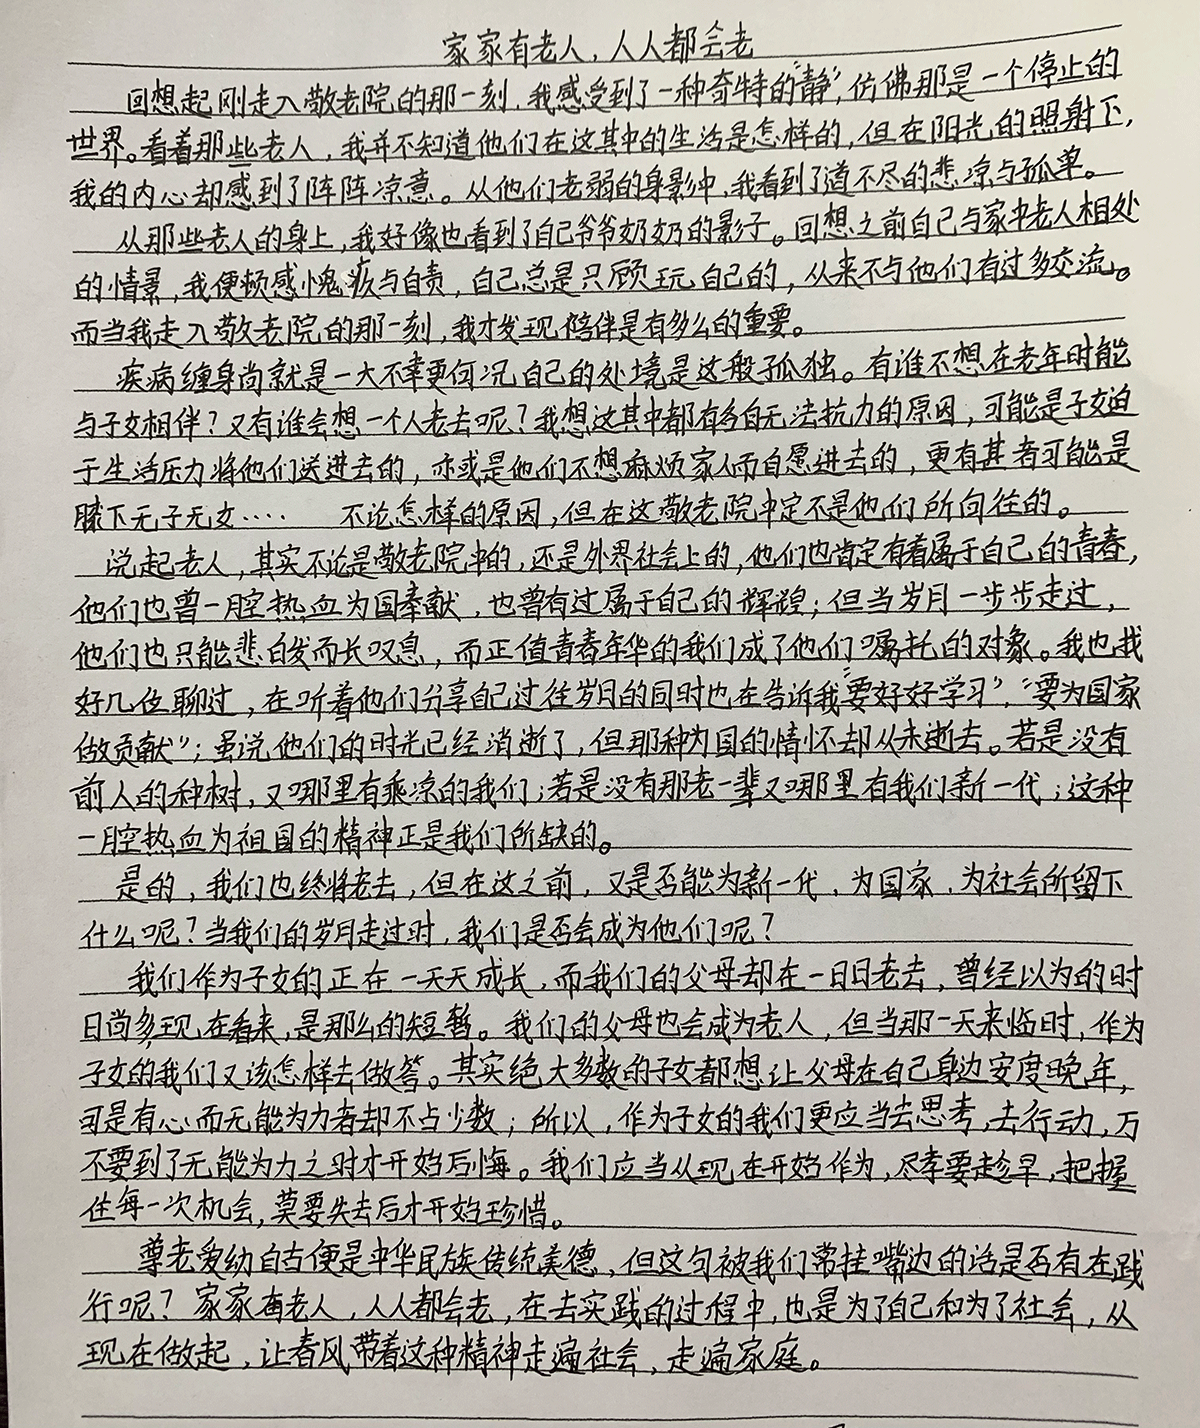 家家有老人，人人都会老
回想起刚走入敬老院的那一刻，我感受到了一种奇特的“静”，仿佛那是一个停止的
世界。看着那些老人，我并不知道他们在这其中的生活是怎样的，但在阳光的照射下，
我的内心却感到了阵阵凉意。从他们老弱的身影中，我看到了道不尽的悲凉与孤单。
从那些老人的身上，我好像也看到了自己爷爷奶奶的影子。回想之前自己与家中老人相处
的情景，我便顿感愧疚与自责，自己总是只顾玩自己的，从来不与他们有过多交流。
而当我走入敬老院的那一刻，我才发现陪伴是有多么的重要。
疾病缠身尚就是一大不幸更何况自己的处境是这般孤独。有谁不想在老年时能
与子女相伴？又有谁会想一个人老去呢？我想这其中都有各自无法抗力的原因，可能是子女迫
于生活压力将他们送进去的，亦或是他们不想麻烦家人而自愿进去的，更有甚者可能是
膝下无子无女…… 不论怎样的原因，但在这敬老院中定不是他们所向往的。
说起老人，其实不论是敬老院中的，还是外界社会上的，他们也肯定有着属于自己的青春，
他们也曾一腔热血为国奉献，也曾有过属于自己的辉煌；但当岁月一步步走过，
他们也只能悲白发而长叹息，而正值青春年华的我们成了他们嘱托的对象。我也找
好几位聊过，在听着他们分享自己过往岁月的同时也在告诉我“要好好学习”，“要为国家
做贡献”；虽说他们的时光已经消逝了，但那种为国的情怀却从未逝去。若是没有
前人的种树，又哪里有乘凉的我们；若是没有那老一辈又哪里有我们新一代；这种
一腔热血为祖国的精神正是我们所缺的。
是的，我们也终将老去，但在这之前，又是否能为新一代，为国家，为社会所留下
什么呢？当我们的岁月走过时，我们是否会成为他们呢？
我们作为子女的正在一天天成长，而我们的父母却在一日日老去，曾经以为的时
日尚多，现在看来，是那么的短暂。我们的父母也会成为老人，但当那一天来临时，作为
子女的我们又该怎样去做答。其实绝大多数的子女都想让父母在自己身边安度晚年，
可是有心而无能为力者却不占少数；所以，作为子女的我们更应当去思考，去行动，万
不要到了无能为力之时才开始后悔。我们应当从现在开始作为，尽孝要趁早，把握
住每一次机会，莫要失去后才开始珍惜。
尊老爱幼自古便是中华民族传统美德，但这句被我们常挂嘴边的话是否有在践
行呢？家家有老人，人人都会老，在去实践的过程中，也是为了自己和为了社会，从
现在做起，让春风带着这种精神走遍社会，走遍家庭。